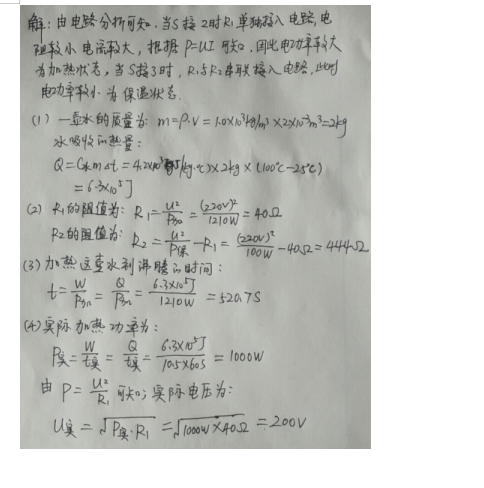 解：由电路分析可知，当S接2时R₁单独接入电路，电
阻较小电流较大，根据P=UI可知，因此电功率较大
为加热状态，当S接3时，R₁与R₂串联接入电路，此时
电功率较小为保温状态．
(1) 一壶水的质量为：m=ρ·V=1.0×10³kg/m³×2×10⁻³m³=2kg
水吸收的热量：
Q=C水mΔt=4.2×10³J/(kg·℃)×2kg×(100℃-25℃)
=6.3×10⁵J
(2) R₁的阻值为：R₁=U²/P加=(220V)²/1210W=40Ω
R₂的阻值为：R₂=U²/P保-R₁=(220V)²/100W-40Ω=444Ω
(3) 加热这壶水到沸腾的时间：
t=W/P加=Q/P加=6.3×10⁵J/1210W=520.7S
(4) 实际加热功率为：
P实=W/t实=Q/t实=6.3×10⁵J/10.5×60S=1000W
由P=U²/R₁可知；实际电压为：
U实=√P实·R₁=√1000W×40Ω=200V